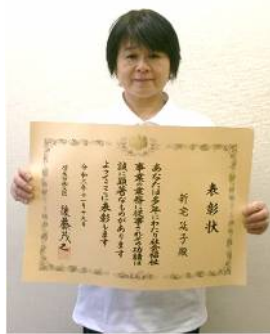 表彰状
新宅 殿
あなたは多年にわたり社会福祉
事業の業務に従事されその功績は
誠に顕著なものがあります
よってここに表彰します
令和 年十一月 日
厚生労働大臣 後藤茂之